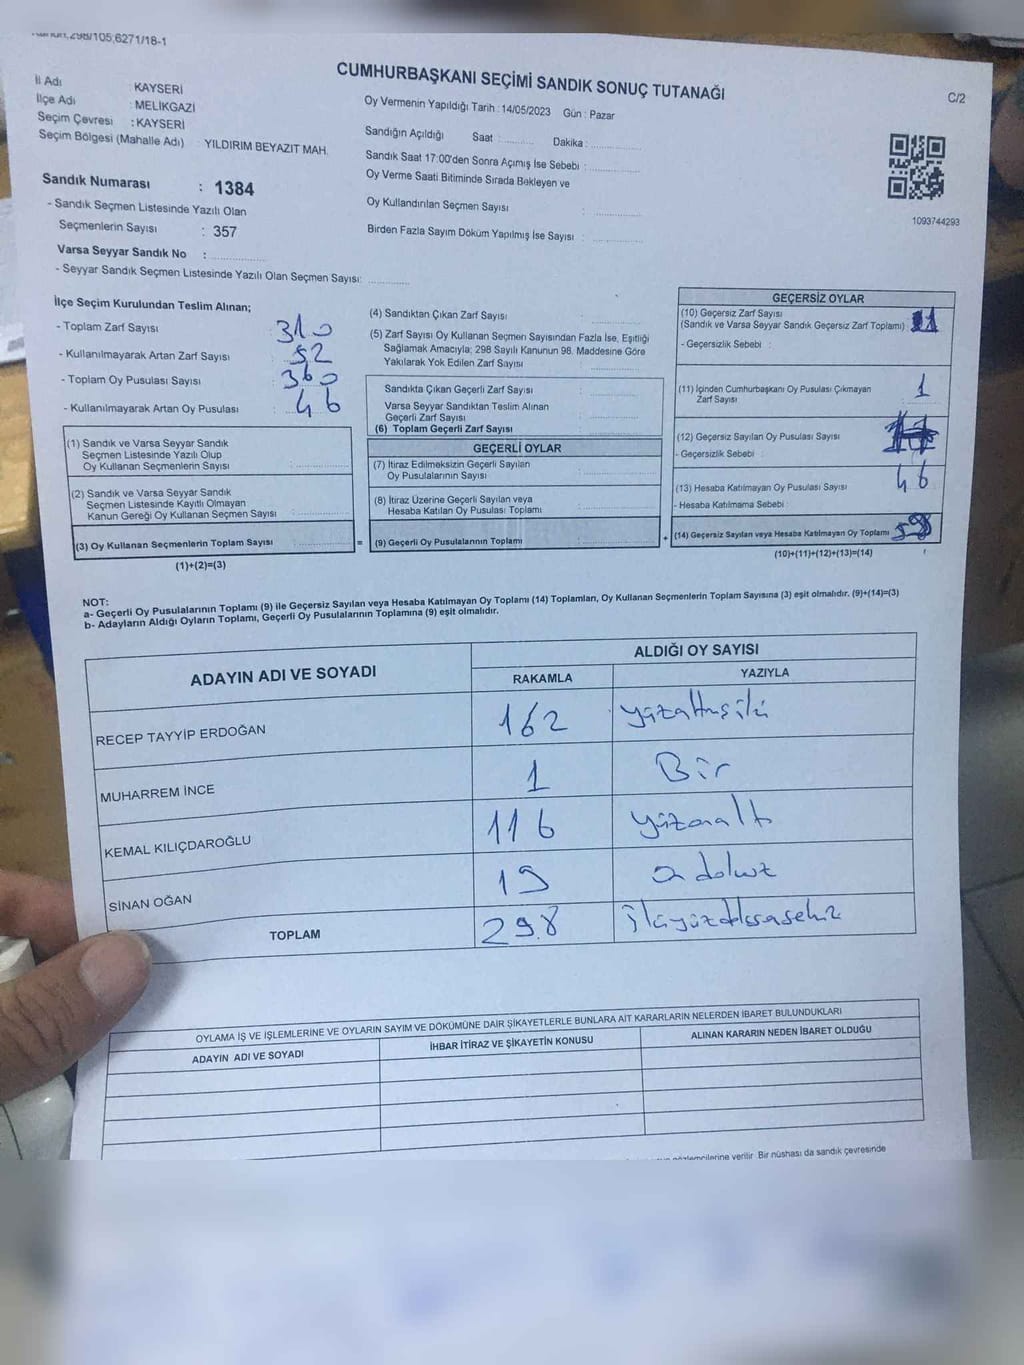 Kanun:298/105,6271/18-1
CUMHURBAŞKANI SEÇİMİ SANDIK SONUÇ TUTANAĞI
C/2
İl Adı : KAYSERİ
İlçe Adı : MELİKGAZİ
Seçim Çevresi : KAYSERİ
Seçim Bölgesi (Mahalle Adı) YILDIRIM BEYAZIT MAH.
Oy Vermenin Yapıldığı Tarih : 14/05/2023 Gün : Pazar
Sandığın Açıldığı Saat : Dakika :
Sandık Saat 17:00'den Sonra Açımış İse Sebebi :
Oy Verme Saati Bitiminde Sırada Bekleyen ve
Oy Kullandırılan Seçmen Sayısı :
Birden Fazla Sayım Döküm Yapılmış İse Sayısı :
1093744293
Sandık Numarası : 1384
- Sandık Seçmen Listesinde Yazılı Olan
Seçmenlerin Sayısı : 357
Varsa Seyyar Sandık No :
- Seyyar Sandık Seçmen Listesinde Yazılı Olan Seçmen Sayısı:
İlçe Seçim Kurulundan Teslim Alınan;
- Toplam Zarf Sayısı : 310
- Kullanılmayarak Artan Zarf Sayısı : 52
- Toplam Oy Pusulası Sayısı : 360
- Kullanılmayarak Artan Oy Pusulası : 46
(1) Sandık ve Varsa Seyyar Sandık
Seçmen Listesinde Yazılı Olup
Oy Kullanan Seçmenlerin Sayısı :
(2) Sandık ve Varsa Seyyar Sandık
Seçmen Listesinde Kayıtlı Olmayan
Kanun Gereği Oy Kullanan Seçmen Sayısı :
(3) Oy Kullanan Seçmenlerin Toplam Sayısı
(1)+(2)=(3)
=
(4) Sandıktan Çıkan Zarf Sayısı :
(5) Zarf Sayısı Oy Kullanan Seçmen Sayısından Fazla İse, Eşitliği
Sağlamak Amacıyla; 298 Sayılı Kanunun 98. Maddesine Göre
Yakılarak Yok Edilen Zarf Sayısı
Sandıkta Çıkan Geçerli Zarf Sayısı
Varsa Seyyar Sandıktan Teslim Alınan
Geçerli Zarf Sayısı
(6) Toplam Geçerli Zarf Sayısı
GEÇERLİ OYLAR
(7) İtiraz Edilmeksizin Geçerli Sayılan
Oy Pusulalarının Sayısı
(8) İtiraz Üzerine Geçerli Sayılan veya
Hesaba Katılan Oy Pusulası Toplamı
(9) Geçerli Oy Pusulalarının Toplamı
+
GEÇERSİZ OYLAR
(10) Geçersiz Zarf Sayısı
(Sandık ve Varsa Seyyar Sandık Geçersiz Zarf Toplamı)
- Geçersizlik Sebebi :
(11) İçinden Cumhurbaşkanı Oy Pusulası Çıkmayan
Zarf Sayısı 1
(12) Geçersiz Sayılan Oy Pusulası Sayısı
- Geçersizlik Sebebi :
(13) Hesaba Katılmayan Oy Pusulası Sayısı 46
- Hesaba Katılmama Sebebi
(14) Geçersiz Sayılan veya Hesaba Katılmayan Oy Toplamı
(10)+(11)+(12)+(13)=(14)
NOT:
a- Geçerli Oy Pusulalarının Toplamı (9) ile Geçersiz Sayılan veya Hesaba Katılmayan Oy Toplamı (14) Toplamları, Oy Kullanan Seçmenlerin Toplam Sayısına (3) eşit olmalıdır. (9)+(14)=(3)
b- Adayların Aldığı Oyların Toplamı, Geçerli Oy Pusulalarının Toplamına (9) eşit olmalıdır.
ADAYIN ADI VE SOYADI
ALDIĞI OY SAYISI
RAKAMLA YAZIYLA
RECEP TAYYİP ERDOĞAN 162 yüzaltmışiki
MUHARREM İNCE 1 Bir
KEMAL KILIÇDAROĞLU 116 yüzonaltı
SİNAN OĞAN 19 on dokuz
TOPLAM 298 ikiyüzdoksansekiz
OYLAMA İŞ VE İŞLEMLERİNE VE OYLARIN SAYIM VE DÖKÜMÜNE DAİR ŞİKAYETLERLE BUNLARA AİT KARARLARIN NELERDEN İBARET BULUNDUKLARI
ADAYIN ADI VE SOYADI İHBAR İTİRAZ VE ŞİKAYETİN KONUSU ALINAN KARARIN NEDEN İBARET OLDUĞU
verilir. Bir nüshası da sandık çevresinde